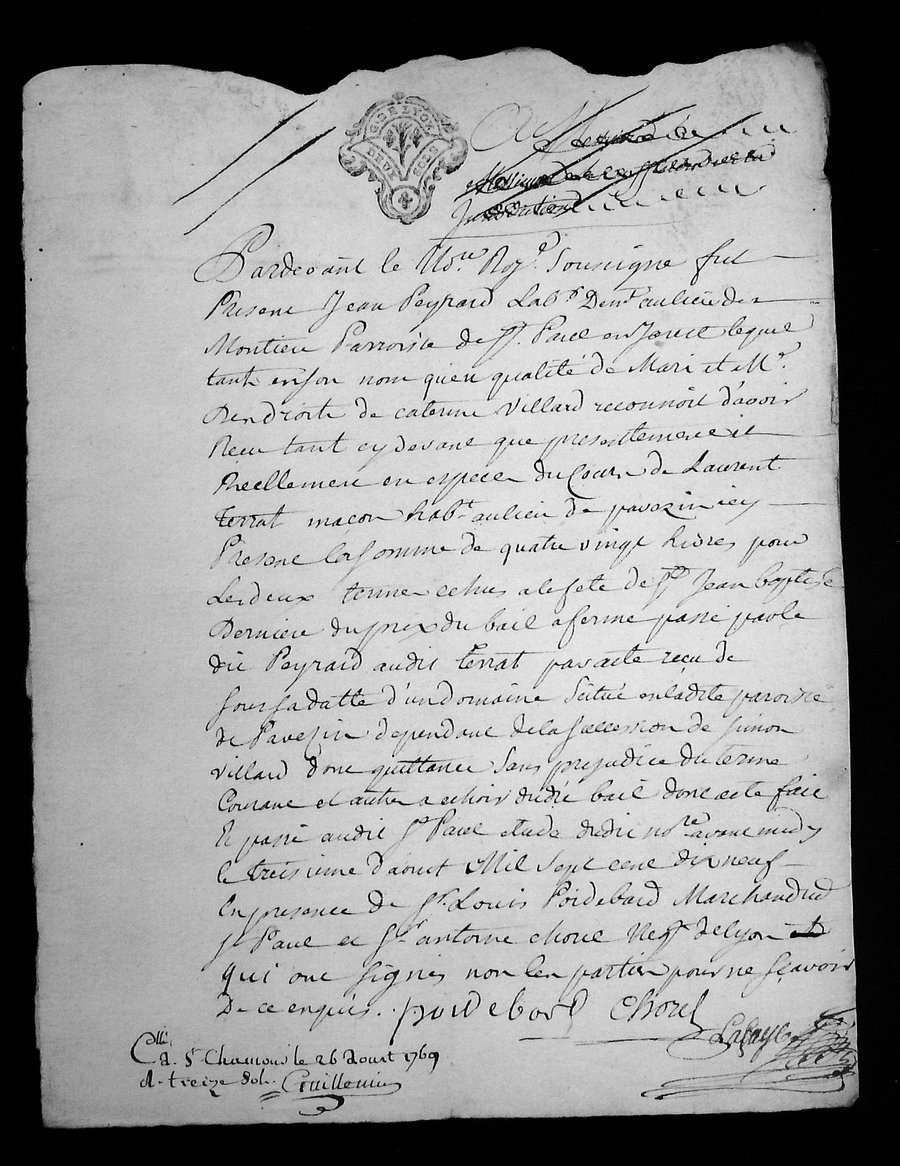 G. DE LYON
DEUX SOLS
Pardevant le No.re Roy.l Sousigne fut
Present Jean Peyrard Lab.r Dem.t au lieu de
Montieu Parroisse de St. Paul en Jarest lequel
tant en son nom qu'en qualité de Mari et M.e
Des droits de caterine Villard reconnoit d'avoir
Recu tant cy devant que presentement et
Reellement en espece du Cours de Laurent
Terrat macon hab.t au lieu de pavezin icy
Present la somme de quatre vingt Livres pour
Les deux termes echus a la fete de St Jean baptiste
Derniere du prix du bail a ferme passé par le
dit Peyrard audit Terrat par acte reçu de
sous sa datte d'un domaine Scitué en ladite paroisse
de Pavezin dependant de la succession de Simon
Villard dont quittance Sans prejudice du terme
Courant et autres a echoir dudit bail dont acte fait
Et passé audit St Paul etude dudit no.re avant midy
le treisieme d'aoust Mil Sept cent soixante neuf
En presence de Sr. Louis Poidebard Marchand
St Paul et Sr antoine chorel Neg.t de Lyon
qui ont signés non les parties pour ne sçavoir
De ce enquis. poidebard Chorel
Lafay
Clle
A St Chamond le 26 Aout 1769
R. treize sols.